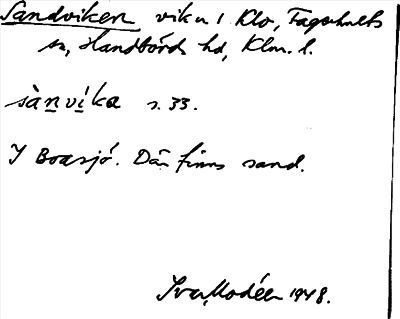 Sandviken vik u. Klo, Fagerhults
sn, Handbörds hd, Klm. l.
sànvíka s. 33.
I Boasjö. Där finns sand.
Ivar Modéer 1948.